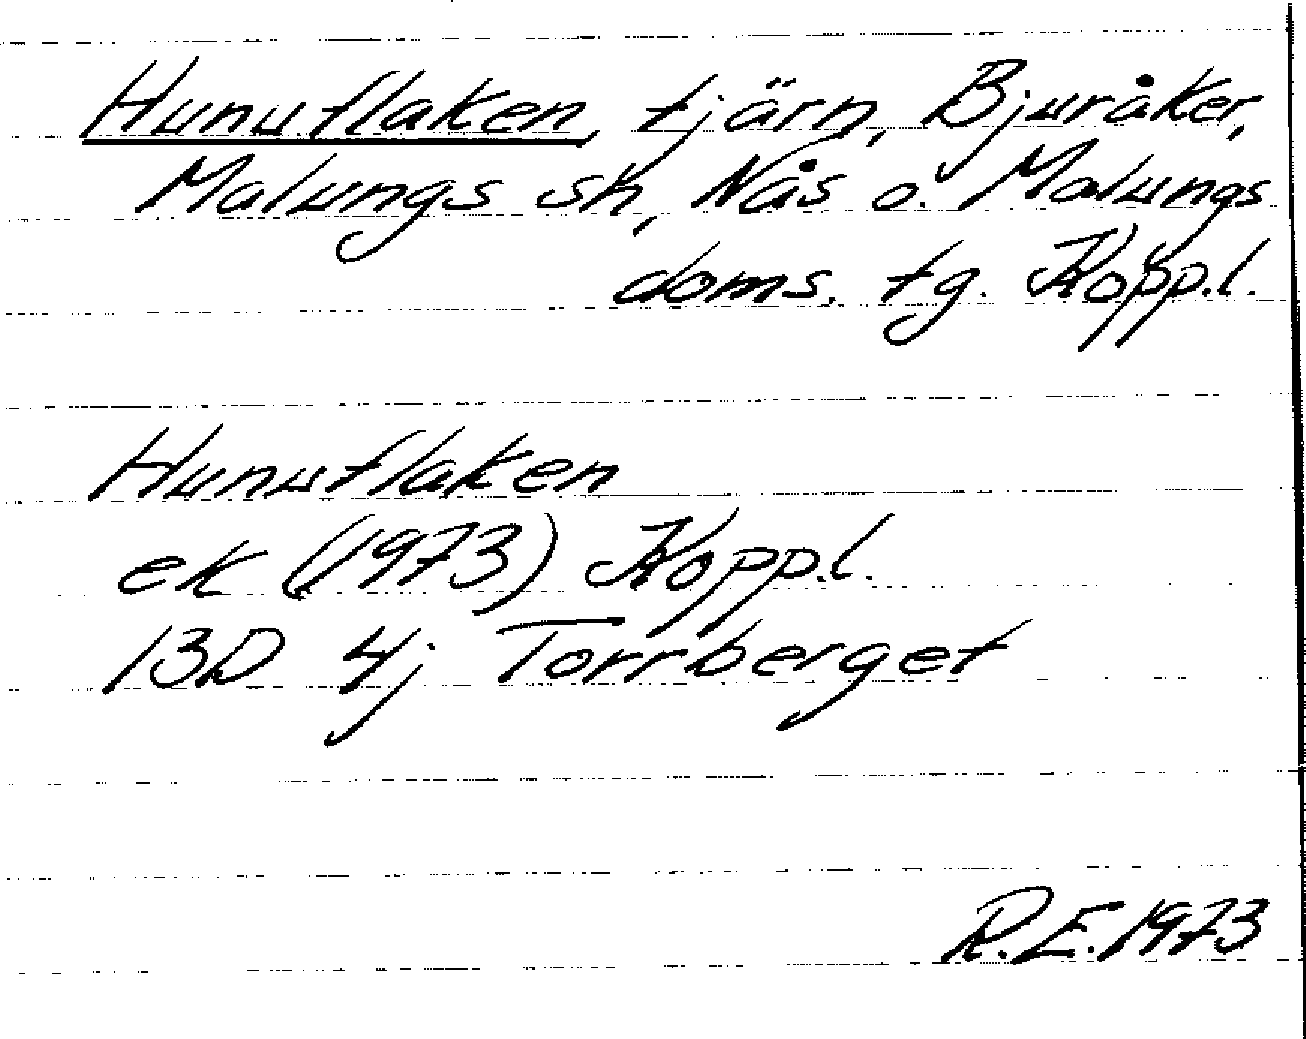 Hunuflaken, tjärn, Bjuråker,
Malungs sn, Nås o. Malungs
doms. tg. Kopp.l.
Hunuflaken
ek (1973) Kopp.l.
13D 4j Torrberget
R.E. 1973